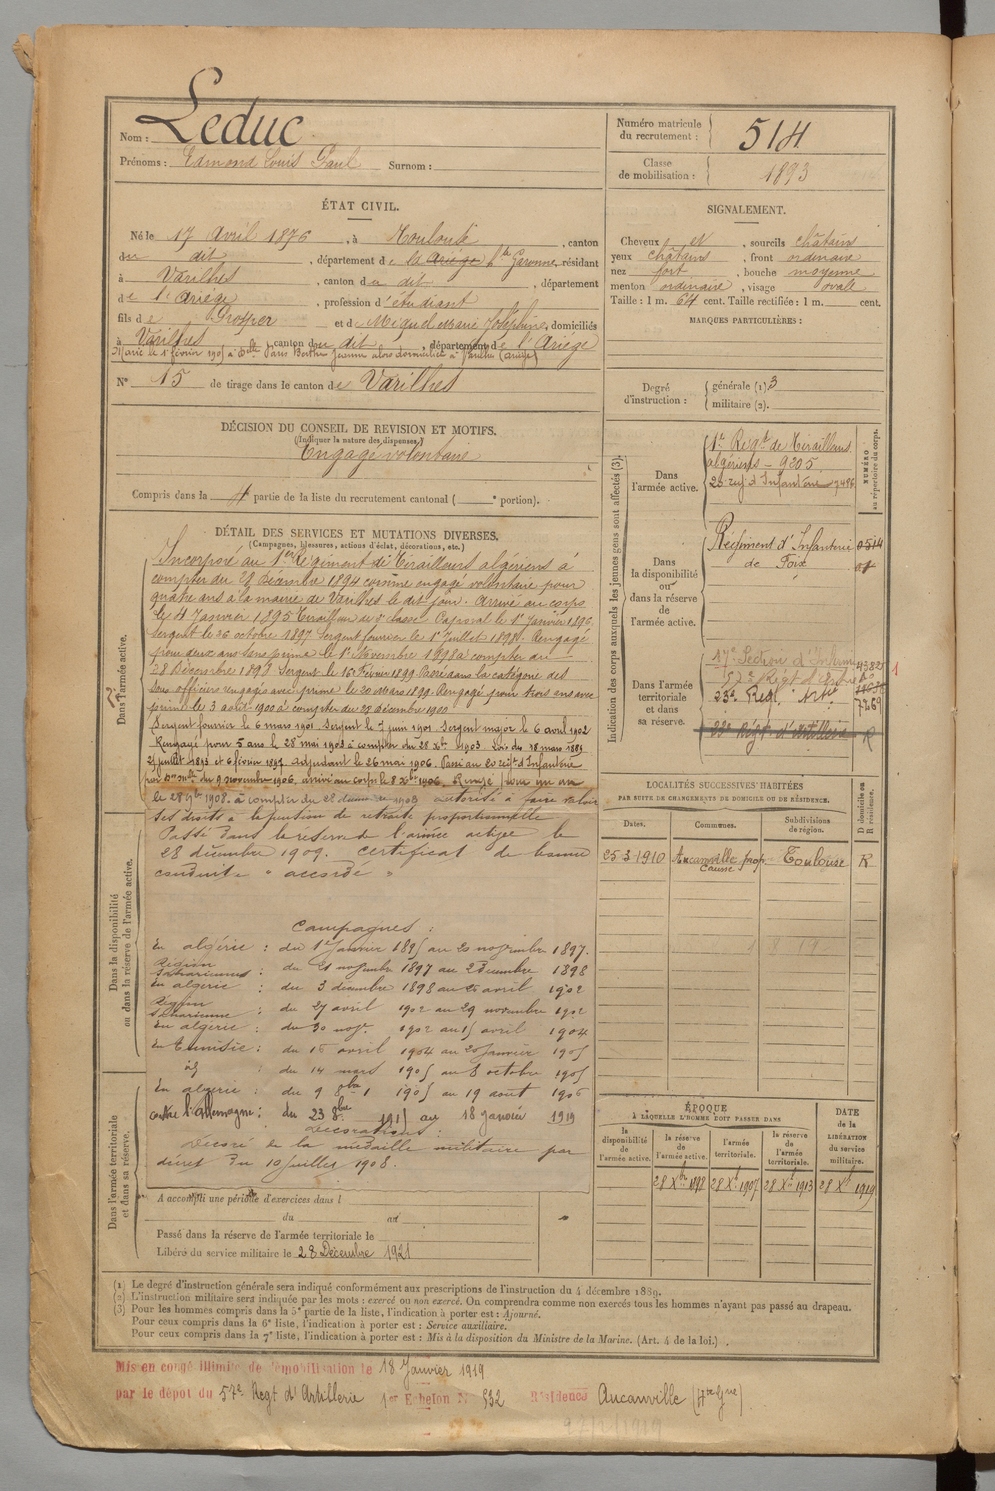 Nom : Leduc
Prénoms : Edmond Louis Paul Surnom :
Numéro matricule du recrutement : 514
Classe de mobilisation : 1893
ÉTAT CIVIL.
Né le 17 Avril 1876, à Toulouse, canton
du dit, département de la Ariège Hte Garonne, résidant
à Varilhes, canton du dit, département
de l'Ariège, profession d'étudiant
fils de Prosper et de Miquel Marie Joséphine, domiciliés
à Varilhes, canton du dit, département de l'Ariège
Marié le 1er février 1905 à Delle Paris Berthe Jeanne alors domiciliée à Varilhes (Ariège)
N° 15 de tirage dans le canton de Varilhes
SIGNALEMENT.
Cheveux et, sourcils châtains
yeux châtains, front ordinaire
nez fort, bouche moyenne
menton ordinaire, visage ovale
Taille : 1 m. 64 cent. Taille rectifiée : 1 m. cent.
MARQUES PARTICULIÈRES :
Degré d'instruction : générale (1) 3
militaire (2).
DÉCISION DU CONSEIL DE REVISION ET MOTIFS.
(Indiquer la nature des dispenses.)
Engagé volontaire
Compris dans la 4 partie de la liste du recrutement cantonal ( e portion).
DÉTAIL DES SERVICES ET MUTATIONS DIVERSES.
(Campagnes, blessures, actions d'éclat, décorations, etc.)
Dans l'armée active.
Incorporé au 1er Régiment de Tirailleurs algériens à
compter du 29 Décembre 1894 comme engagé volontaire pour
quatre ans à la mairie de Varilhes le dit jour. Arrivé au corps
le 4 Janvier 1895 Tirailleur de 2e classe. Caporal le 1er Janvier 1896,
Sergent le 26 octobre 1897 Sergent fourrier le 1er Juillet 1898. Rengagé
pour deux ans sans prime le 1er Novembre 1898 à compter du
28 Décembre 1898 Sergent le 16 Février 1899 Passé dans la catégorie des
sous officiers rengagés avec prime le 20 Mars 1899. Rengagé pour trois ans avec
prime le 3 août 1900 à compter du 28 décembre 1900
Sergent fourrier le 6 mars 1901 Sergent le 7 juin 1901 Sergent major le 6 avril 1902
Rengagé pour 5 ans le 28 mai 1903 à compter du 28 Xbre 1903. Lois des 18 mars 1889
21 juillet 1893 et 6 février 1897. adjudant le 26 mai 1906. Passé au 20 régt d'Infanterie
par Don mlle du 9 novembre 1906, arrivé au corps le 8 Xbre 1906. Rengagé pour un an
le 28 9bre 1908. à compter du 28 décembre 1908 autorisé à faire valoir
ses droits à la pension de retraite proportionnelle
Passé dans la réserve de l'armée active le
28 décembre 1909. Certificat de bonne
conduite " accordé "
Dans la disponibilité ou dans la réserve de l'armée active.
Campagnes :
En algérie : du 1er Janvier 1895 au 20 novembre 1897.
Région Sahariennes : du 21 novembre 1897 au 2 décembre 1898
En algérie : du 3 décembre 1898 au 26 avril 1902
Région Saharienne : du 27 avril 1902 au 29 novembre 1902
En algérie : du 30 novre 1902 au 15 avril 1904
En Tunisie : du 16 avril 1904 au 20 Janvier 1905
id : du 14 mars 1905 au 8 octobre 1905
En algérie : du 9 8bre 1905 au 19 août 1906
contre l'allemagne : du 23 8bre 1915 au 18 janvier 1919
Décorations :
Décoré de la médaille militaire par
décret du 10 Juillet 1908.
Dans l'armée territoriale et dans sa réserve.
A accompli une période d'exercices dans l
du au
Passé dans la réserve de l'armée territoriale le
Libéré du service militaire le 28 Décembre 1921
Indication des corps auxquels les jeunes gens sont affectés (3).
NUMÉRO au répertoire du corps.
Dans l'armée active.
1er Régt de Tirailleurs
algériens - 9205
20 régt d'Infanterie 7496
Dans la disponibilité ou dans la réserve de l'armée active.
Régiment d'Infanterie 0514
de Foix
Dans l'armée territoriale et dans sa réserve.
17e Section d'Infirmiers
57e Régt d'Artie
23e Régt Artie 7769
22e Régt d'Artillerie R
LOCALITÉS SUCCESSIVES HABITÉES
PAR SUITE DE CHANGEMENTS DE DOMICILE OU DE RÉSIDENCE.
Dates. Communes. Subdivisions de région. D domicile ou R résidence.
25-3-1910 Aucamville prop. Toulouse R
ÉPOQUE
A LAQUELLE L'HOMME DOIT PASSER DANS
la disponibilité de l'armée active.
la réserve de l'armée active. 28 Xbre 1898
l'armée territoriale. 28 Xbre 1907
la réserve de l'armée territoriale. 28 Xbre 1913
DATE de la LIBÉRATION du service militaire. 28 Xbre 1919
(1) Le degré d'instruction générale sera indiqué conformément aux prescriptions de l'instruction du 4 décembre 1889.
(2) L'instruction militaire sera indiquée par les mots : exercé ou non exercé. On comprendra comme non exercés tous les hommes n'ayant pas passé au drapeau.
(3) Pour les hommes compris dans la 5e partie de la liste, l'indication à porter est : Ajourné.
Pour ceux compris dans la 6e liste, l'indication à porter est : Service auxiliaire.
Pour ceux compris dans la 7e liste, l'indication à porter est : Mis à la disposition du Ministre de la Marine. (Art. 4 de la loi.)
Mis en congé illimité de démobilisation le 18 Janvier 1919
par le dépôt du 57e Regt d'Artillerie 1er Echelon N° 532 Résidence Aucamville (Hte Gne)